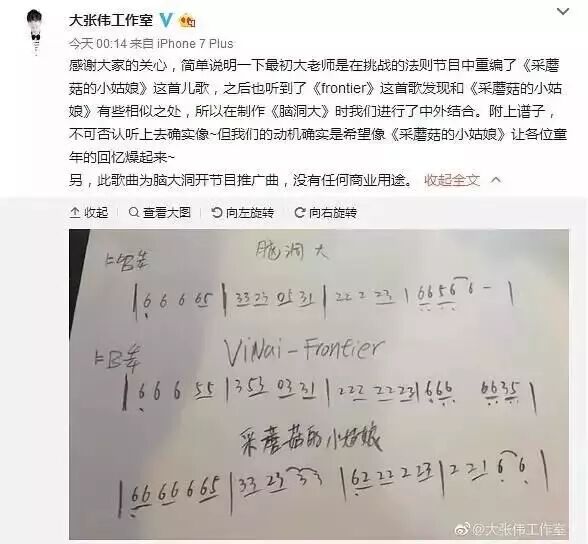 大张伟工作室
今天 00:14 来自 iPhone 7 Plus
感谢大家的关心，简单说明一下最初大老师是在挑战的法则节目中重编了《采蘑
菇的小姑娘》这首儿歌，之后也听到了《frontier》这首歌发现和《采蘑菇的小姑
娘》有些相似之处，所以在制作《脑洞大》时我们进行了中外结合。附上谱子，
不可否认听上去确实像~但我们的动机确实是希望像《采蘑菇的小姑娘》让各位童
年的回忆爆起来~
另，此歌曲为脑大洞开节目推广曲，没有任何商业用途。 收起全文
收起 查看大图 向左旋转 向右旋转
脑洞大
|6 6 6 65|33 23 05 31|22 2 23|6656 6 -|
ViNai-Frontier
|6 6 6 55|353 03 31|222 22 23|666 6635|
采蘑菇的小姑娘
|66 66 665|33 23 3 3|62 22 2 23|2 21 6 6|
@大张伟工作室